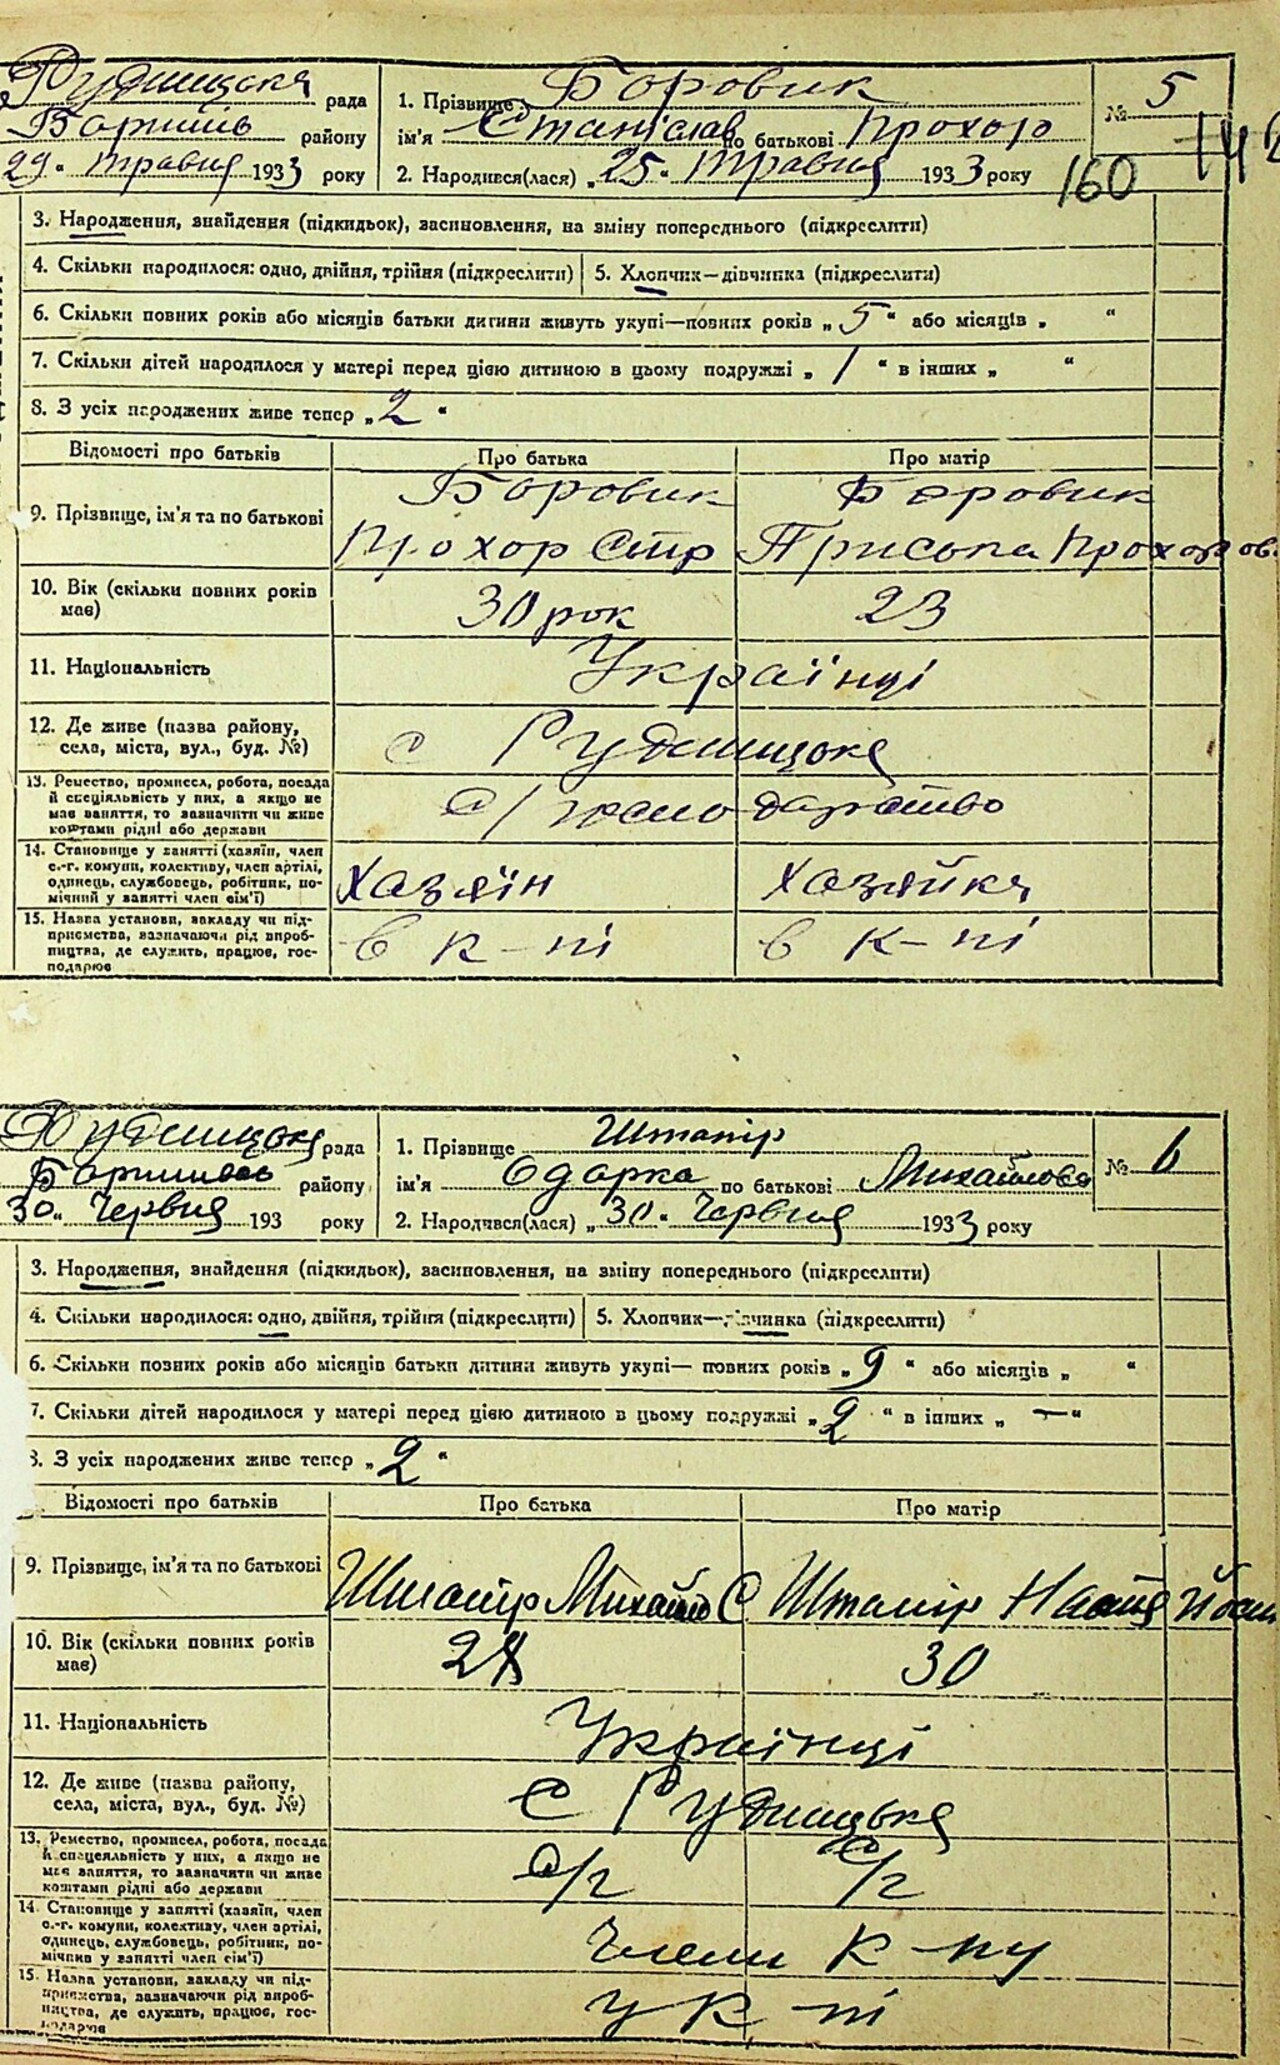 Рудницька рада
Боришпь району
29 " травня 1933 року
1. Прізвище Боровик
ім'я Станіслав по батькові Прохор
2. Народився(лася) „ 25 " травня 1933 року
№ 5
160
142
3. Народження, знайдення (підкидьок), засиновлення, на зміну попереднього (підкреслити)
4. Скільки народилося: одно, двійня, трійня (підкреслити) 5. Хлопчик—дівчинка (підкреслити)
6. Скільки повних років або місяців батьки дитини живуть укупі—повних років „ 5 " або місяців „ "
7. Скільки дітей народилося у матері перед цією дитиною в цьому подружжі „ 1 " в інших „ "
8. З усіх народжених живе тепер „ 2 "
Відомості про батьків Про батька Про матір
9. Прізвище, ім'я та по батькові
Боровик Боровик
Прохор Стр Приська Прохоров.
10. Вік (скільки повних років
має)
30 рок 23
11. Національність Українці
12. Де живе (назва району,
села, міста, вул., буд. №)
с Рудницьке
13. Ремество, промисел, робота, посада
й спеціяльність у них, а якщо не
має заняття, то зазначити чи живе
коштами рідні або держави
с/господарство
14. Становище у занятті (хазяїн, член
с.-г. комуни, колективу, член артілі,
одинець, службовець, робітник, по-
мічний у занятті член сім'ї)
Хазяїн Хазяйка
15. Назва установи, закладу чи під-
приємства, зазначаючи рід вироб-
ництва, де служить, працює, гос-
подарює
в к-пі в к-пі
рада
району
30 " Червня 193 року
1. Прізвище Штапір
ім'я Одарка по батькові Михайлова
2. Народився(лася) „ 30 " Червня 1933 року
№ 6
3. Народження, знайдення (підкидьок), засиновлення, на зміну попереднього (підкреслити)
4. Скільки народилося: одно, двійня, трійня (підкреслити) 5. Хлопчик—дівчинка (підкреслити)
6. Скільки повних років або місяців батьки дитини живуть укупі— повних років „ 9 " або місяців „ "
7. Скільки дітей народилося у матері перед цією дитиною в цьому подружжі „ 2 " в інших „ — "
8. З усіх народжених живе тепер „ 2 "
Відомості про батьків Про батька Про матір
9. Прізвище, ім'я та по батькові
Штапір Михайло С Штапір Настя
10. Вік (скільки повних років
має)
30
11. Національність Українці
12. Де живе (назва району,
села, міста, вул., буд. №)
с Рудницьке
13. Ремество, промисел, робота, посада
й спеціяльність у них, а якщо не
має заняття, то зазначити чи живе
коштами рідні або держави
с/г с/г
14. Становище у занятті (хазяїн, член
с.-г. комуни, колективу, член артілі,
одинець, службовець, робітник, по-
мічний у занятті член сім'ї)
Члени к-пу
15. Назва установи, закладу чи під-
приємства, зазначаючи рід вироб-
ництва, де служить, працює, гос-
подарює
у к-пі